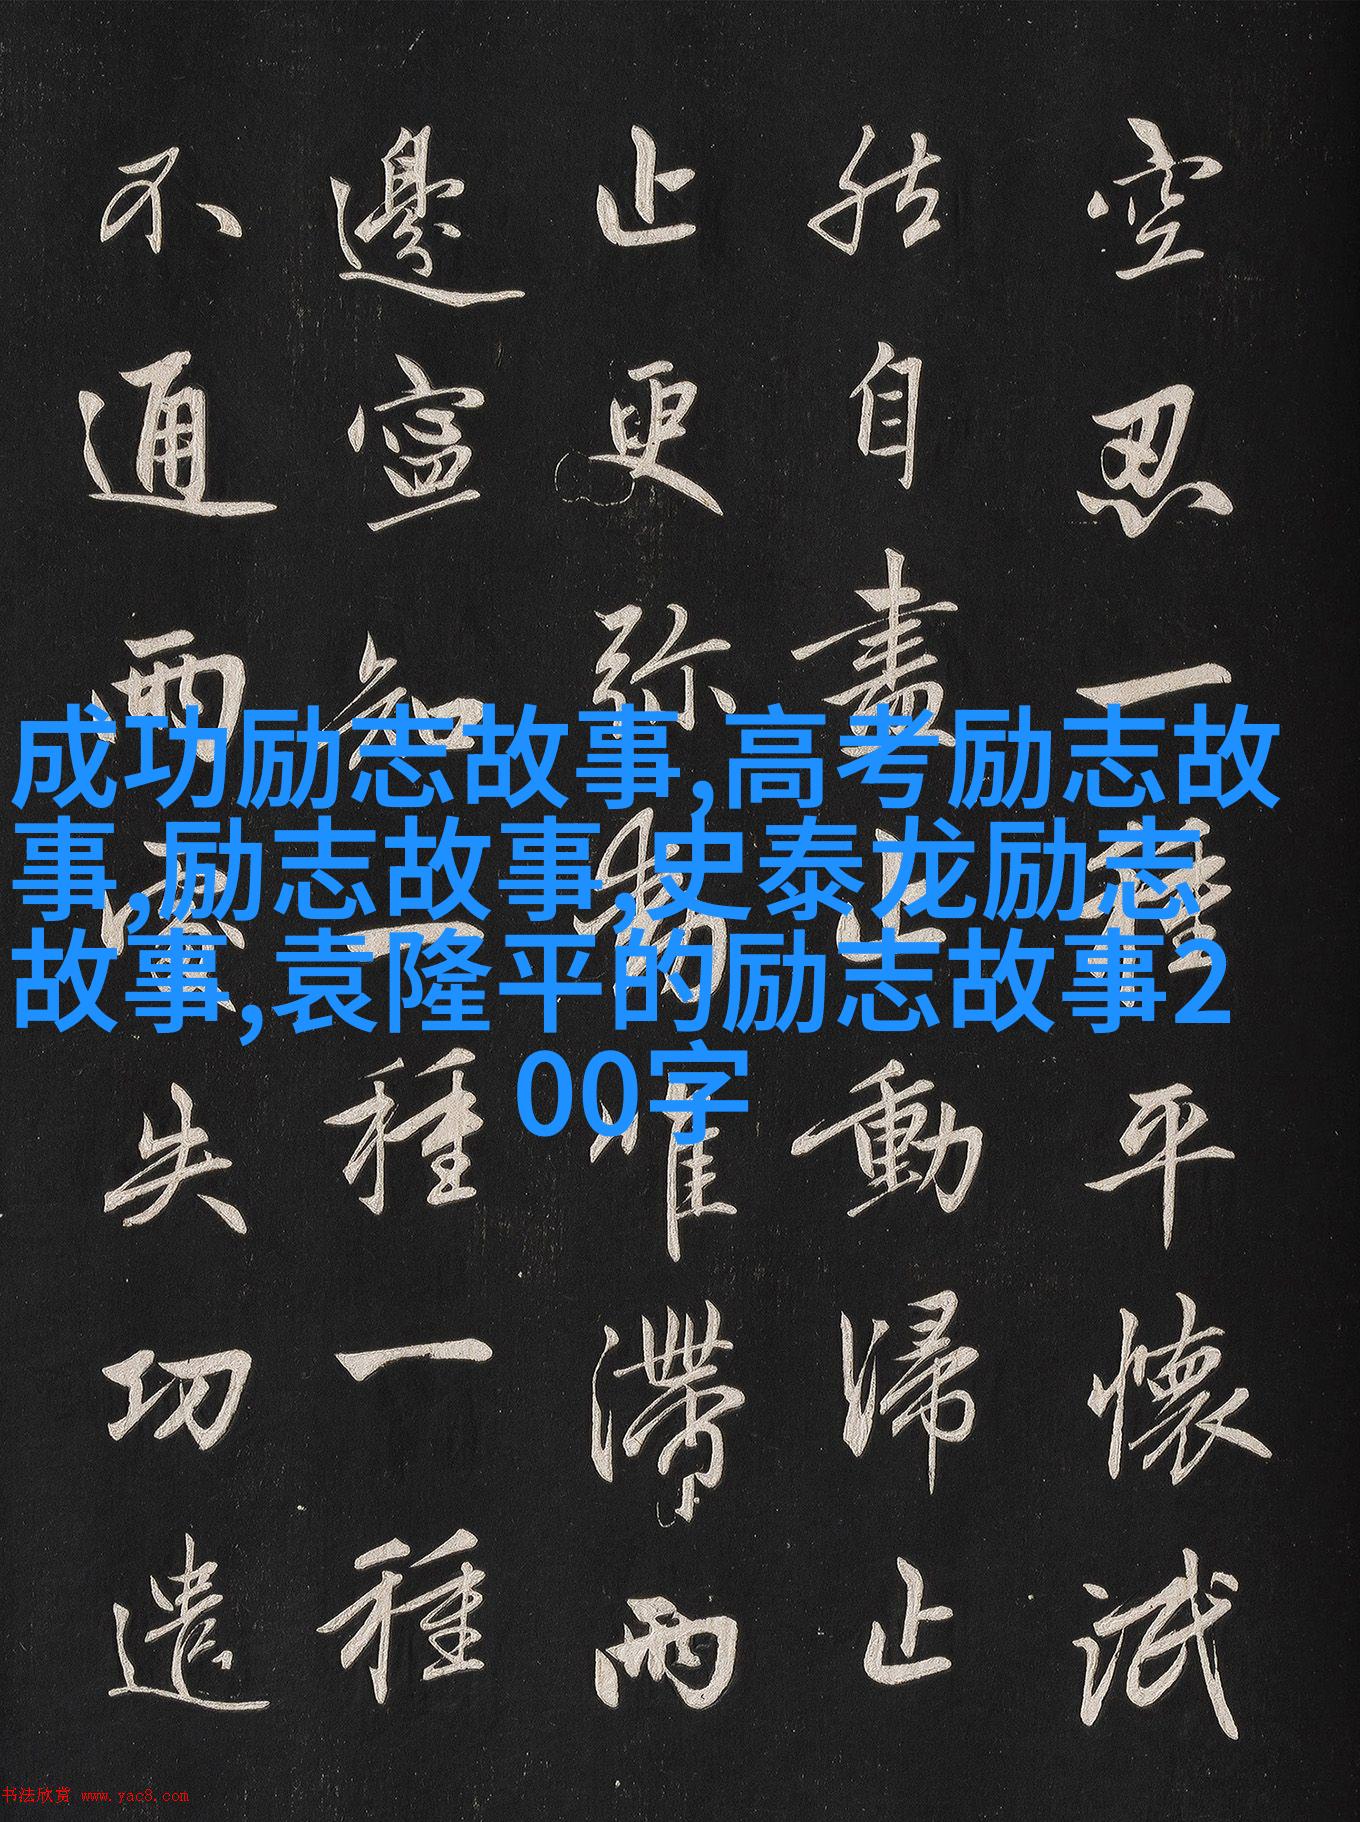 空忍一種平懷泯
然自盡止動歸止
止更弥動唯滯兩
邊寧知一種一種
不通兩處失功遣
成功励志故事,高考励志故
事,励志故事,史泰龙励志
故事,袁隆平的励志故事2
00字
书法欣赏 www.yac8.com